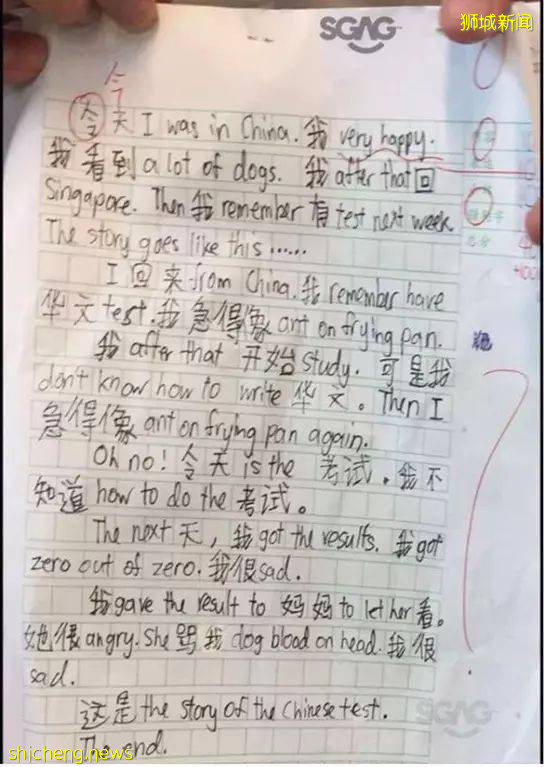 SGAG
狮城新闻
今
令天 I was in China. 我 very happy.
我看到 a lot of dogs. 我 after that 回
Singapore. Then 我 remember 有 test next week.
The story goes like this ......
I 回来 from China. 我 remember have
华文 test. 我急得像 ant on frying pan.
我 after that 开始 study. 可是我
don't know how to write 华文。Then I
急得像 ant on frying pan again.
Oh no! 令天 is the 考试. 我不
知道 how to do the 考试。
The next 天, 我 got the results. 我 got
zero out of zero. 我很 sad.
我 gave the result to 妈妈 to let her 看。
她很 angry. She 骂我 dog blood on head. 我很
sad.
这是 the story of the Chinese test.
The end.
SGAG
shicheng.news